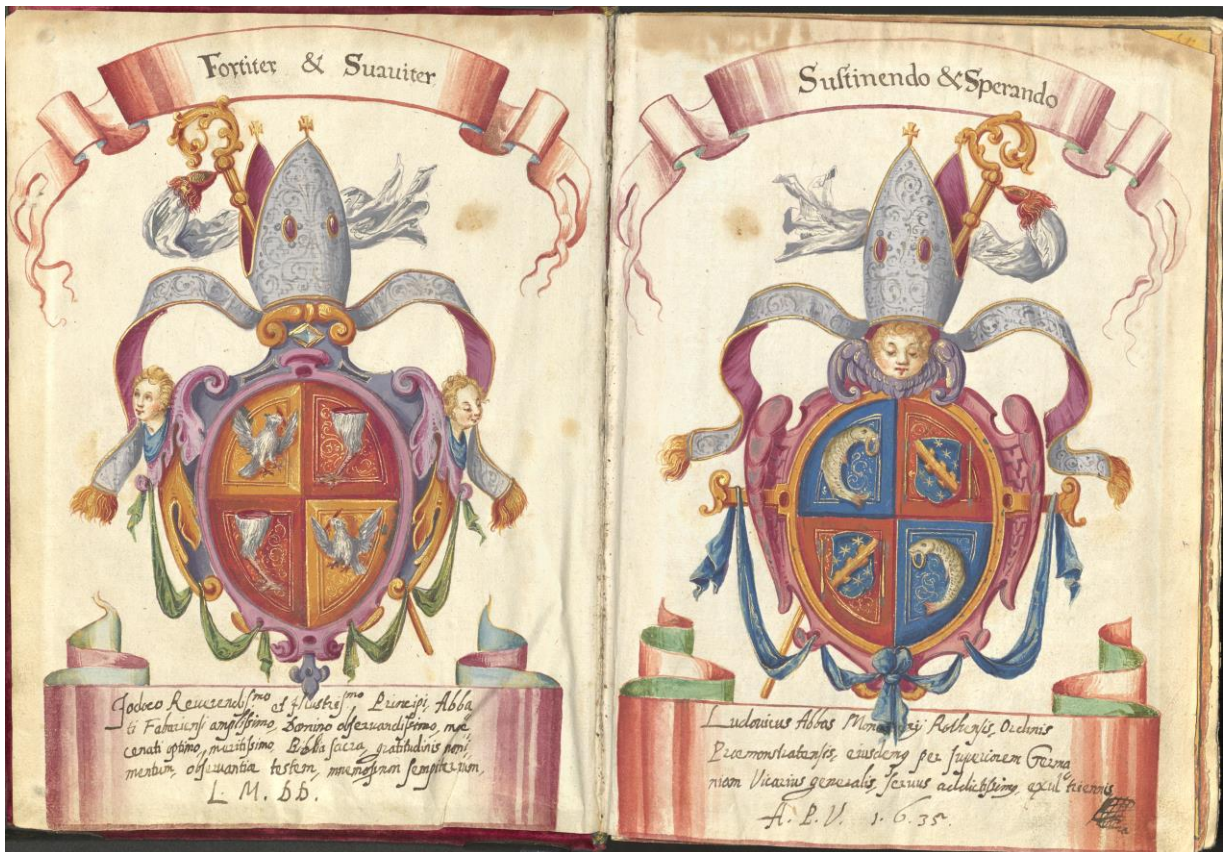 Fortiter & Suauiter
Jodoco Reuerendis.mo et Jllustris.mo Principi, Abba
ti Fabariensi amplissimo, Domino obseruandissimo, mæ
cenati optimo, meritissimo, Biblia sacra, gratitudinis moni
mentum, obseruantiæ testem, mnemosynon sempiternum,
L. M. DD.
Sustinendo & Sperando
Ludouicus Abbas Monasterij Rothensis, Ordinis
Præmonstratensis, eiusdemq per superiorem Germa
niam Vicarius generalis, seruus addictissimg, exul triennis
A. P. V. 1.6.35.